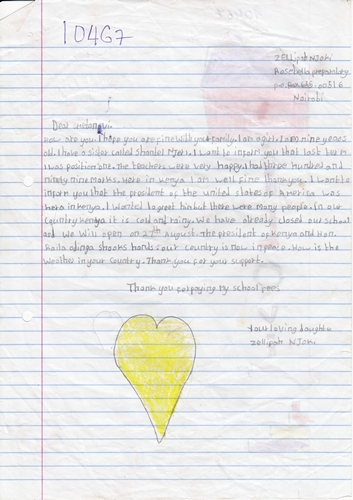 10467
Zellipah Njoki
Rosebella preparatory
p.o. Box
Nairobi
Dear
How are you. I hope you are fine with your family. I am a girl. I am nine years
old. I have a sister called Shantel Njeri. I want to inform you that last term
I was position one. The teachers were very happy. I had three hundred and
ninety nine marks. Here in kenya I am well fine thankyou. I want to
inform you that the president of the united states of America was
here in kenya. I wanted to greet him but there were many people. In our
Country kenya it is cold and rainy. We have already closed our school
and we will open on 27th August. The president of kenya and Hon.
Raila odinga shooks hands our country is now in peace. How is the
weather in your Country. Thank you for your support.
Thank you for paying my school fees
Your loving daughter
Zellipah Njoki